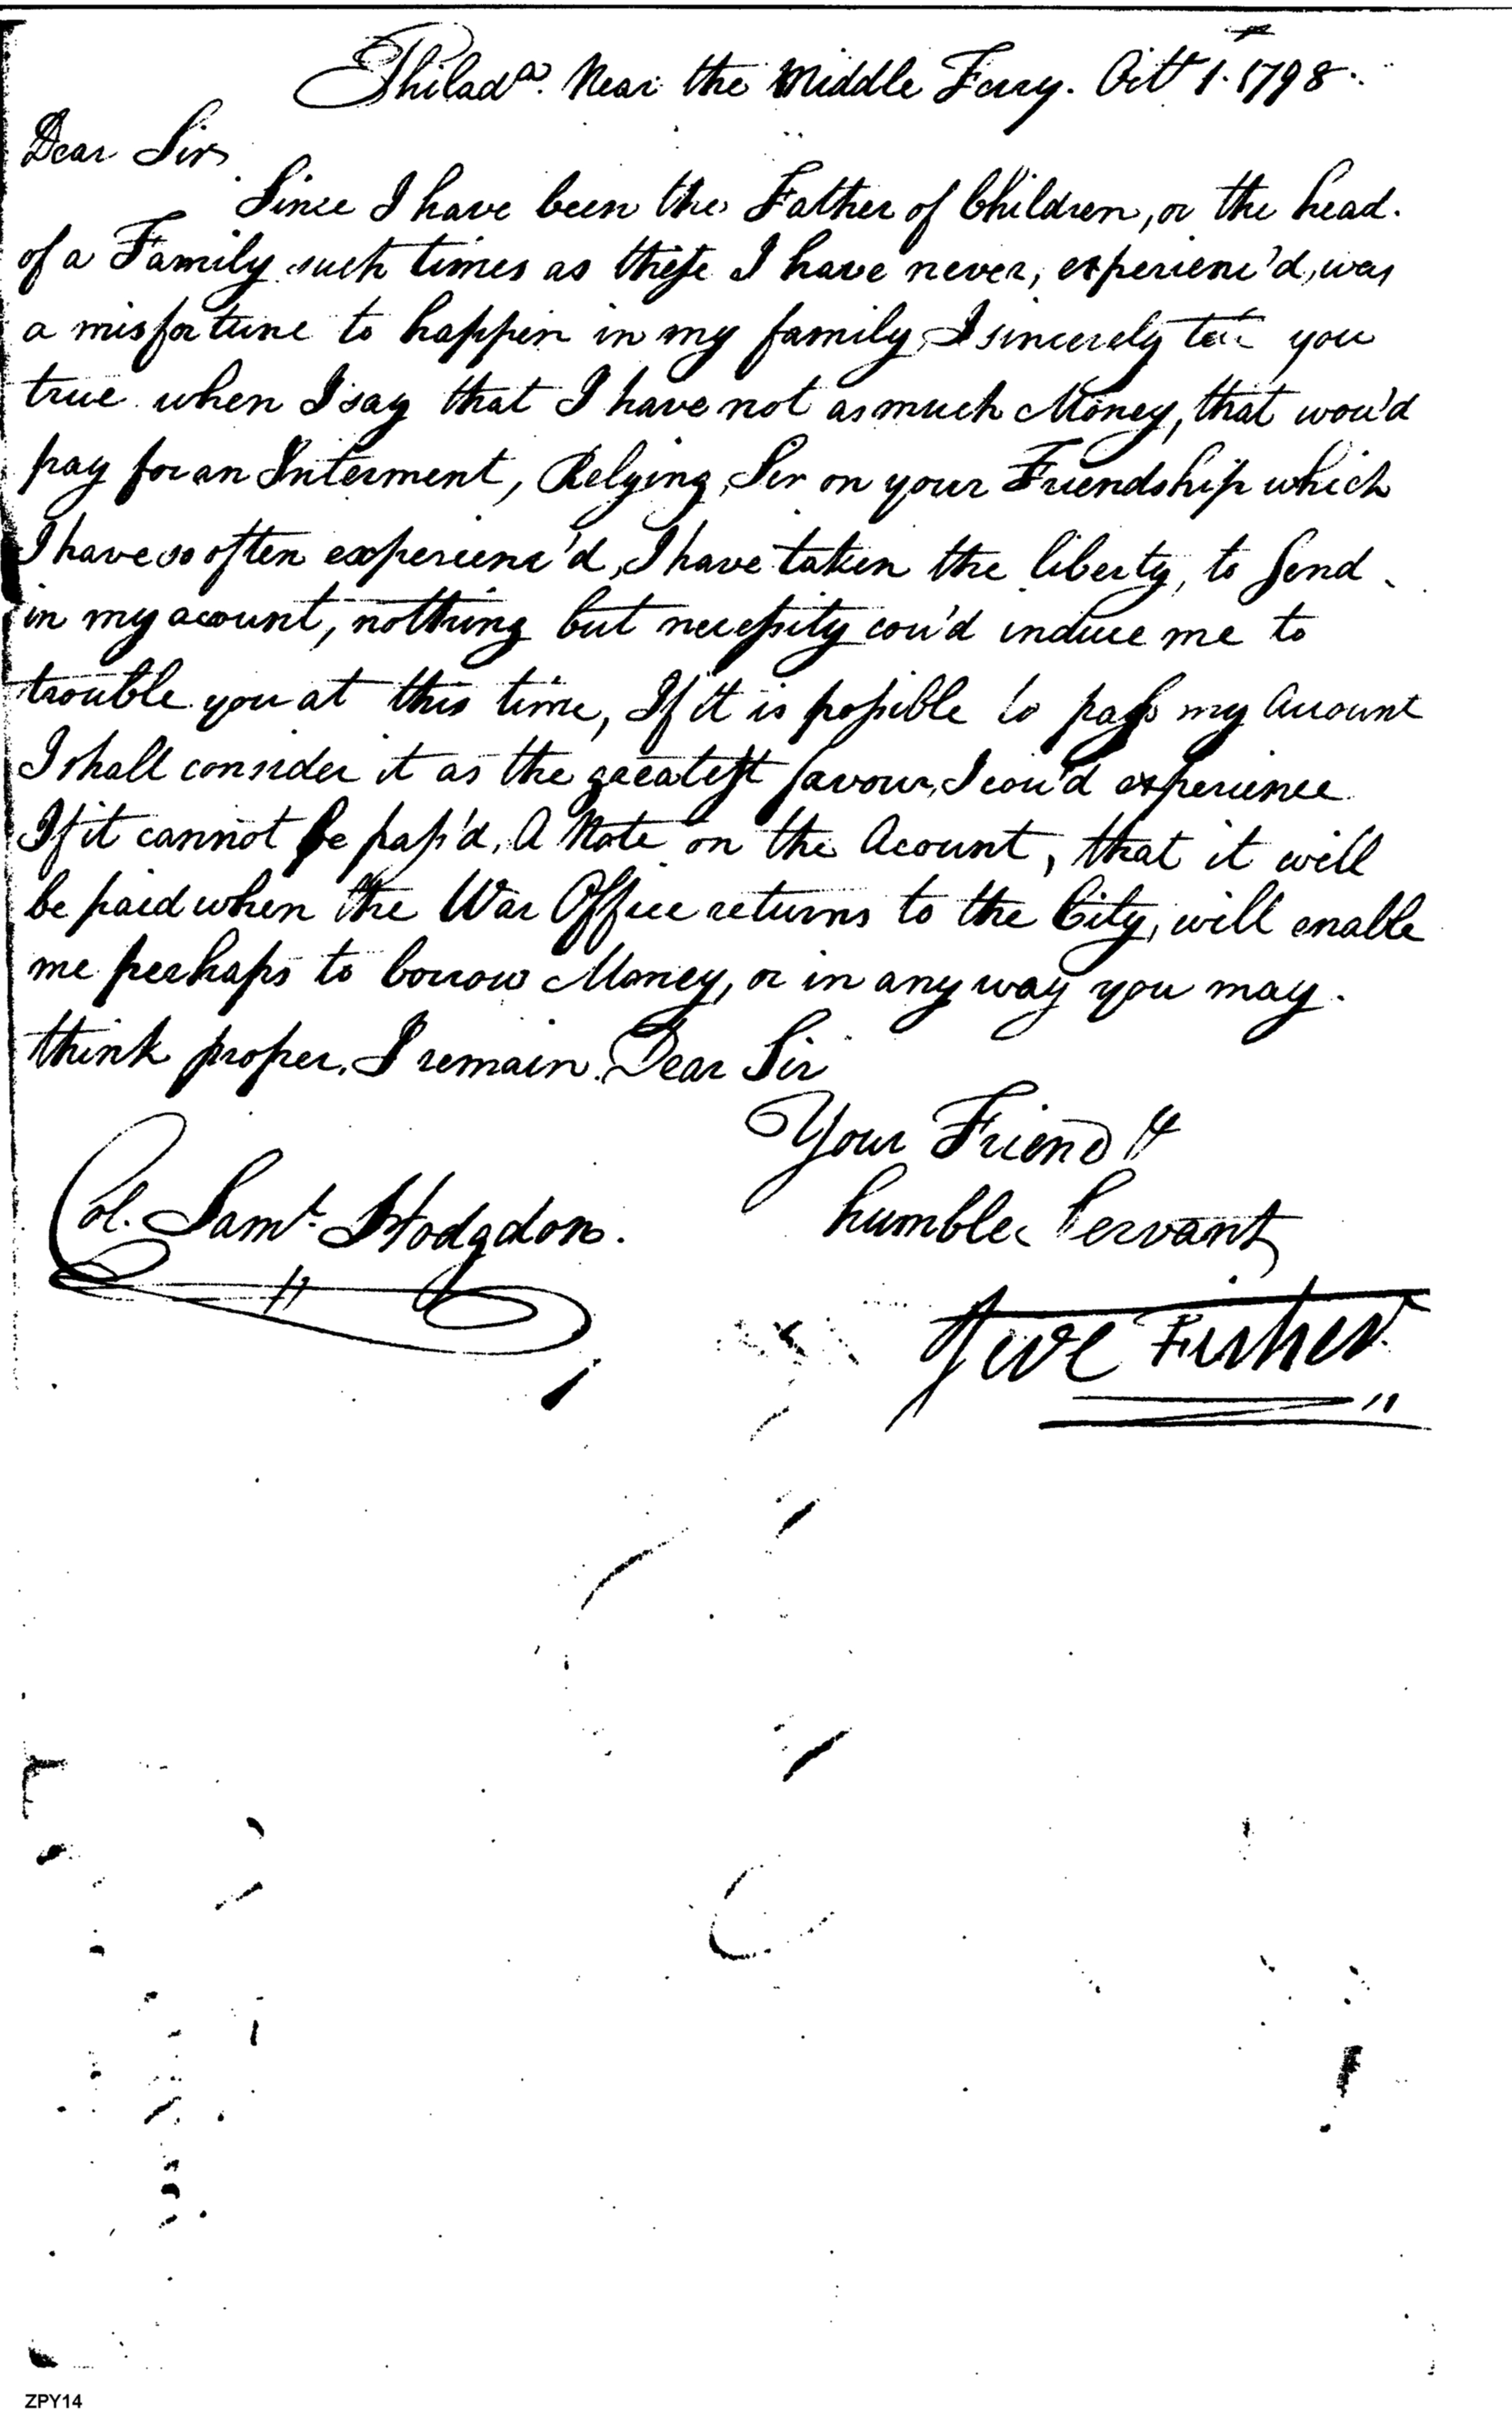 Philada. Near the Middle Ferry. Octr 1. 1798.
Dear Sir
Since I have been the Father of Children, or the head
of a Family such times as these I have never, experienc'd, was
a misfortune to happen in my family, I sincerely tell you
true when I say that I have not as much Money, that wou'd
pay for an Interment, Relying, Sir on your Friendship which
I have so often experienc'd, I have taken the liberty, to Send
in my acount, nothing but necessity cou'd induce me to
trouble you at this time, If it is possible to pass my Account
I shall consider it as the greatest favour, I cou'd experience
If it cannot be pass'd, A Note on the Acount, that it will
be paid when the War Office returns to the City, will enable
me perhaps to borrow Money, or in any way you may
think proper. I remain Dear Sir
Your Friend &
humble Servant
Col. Saml. Hodgdon.
Fisher
ZPY14